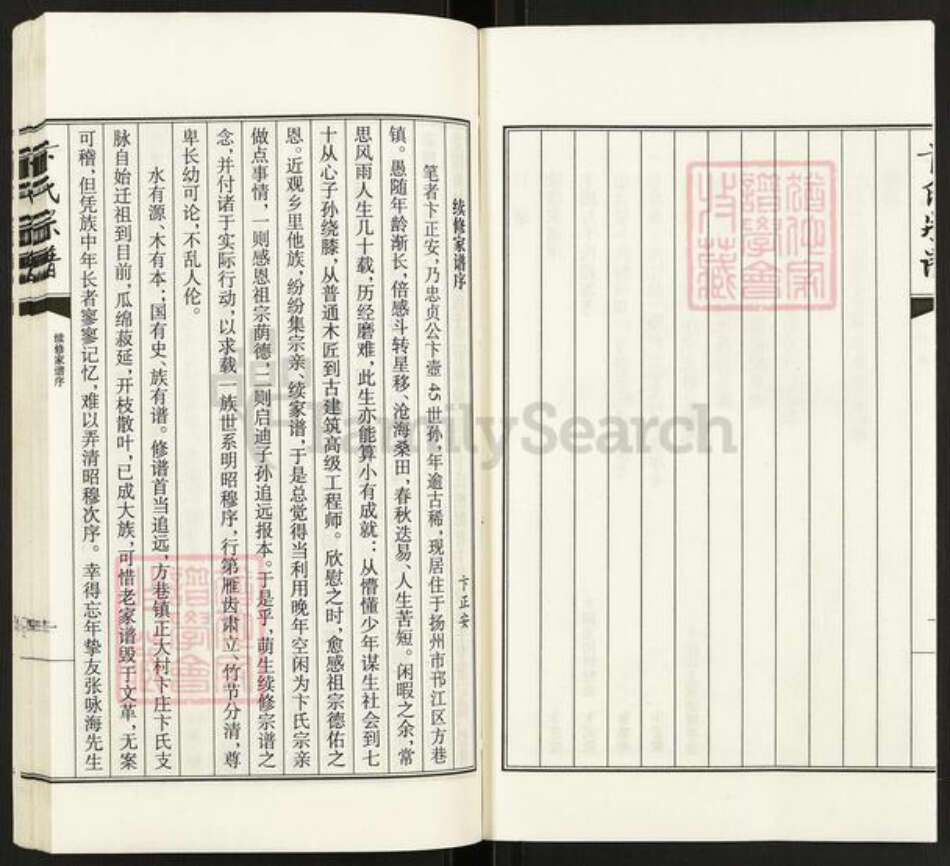 续修家谱序
卞正安
笔者卞正安，乃忠贞公卞壸45世孙，年逾古稀，现居住于扬州市邗江区方巷
镇。愚随年龄渐长，倍感斗转星移、沧海桑田，春秋迭易、人生苦短。闲暇之余，常
思风雨人生几十载，历经磨难，此生亦能算小有成就：从懵懂少年谋生社会到七
十从心子孙绕膝，从普通木匠到古建筑高级工程师。欣慰之时，愈感祖宗德佑之
恩。近观乡里他族，纷纷集宗亲、续家谱，于是总觉得当利用晚年空闲为卞氏宗亲
做点事情，一则感恩祖宗荫德，二则启迪子孙追远报本。于是乎，萌生续修宗谱之
念，并付诸于实际行动，以求载一族世系明昭穆序，行第雁齿肃立、竹节分清，尊
卑长幼可论，不乱人伦。
水有源、木有本；国有史、族有谱。修谱首当追远，方巷镇正大村卞庄卞氏支
脉自始迁祖到目前，瓜绵菽延，开枝散叶，已成大族，可惜老家谱毁于文革，无案
可稽，但凭族中年长者寥寥记忆，难以弄清昭穆次序。幸得忘年挚友张咏海先生
卞氏宗谱
续修家谱序
FamilySearch